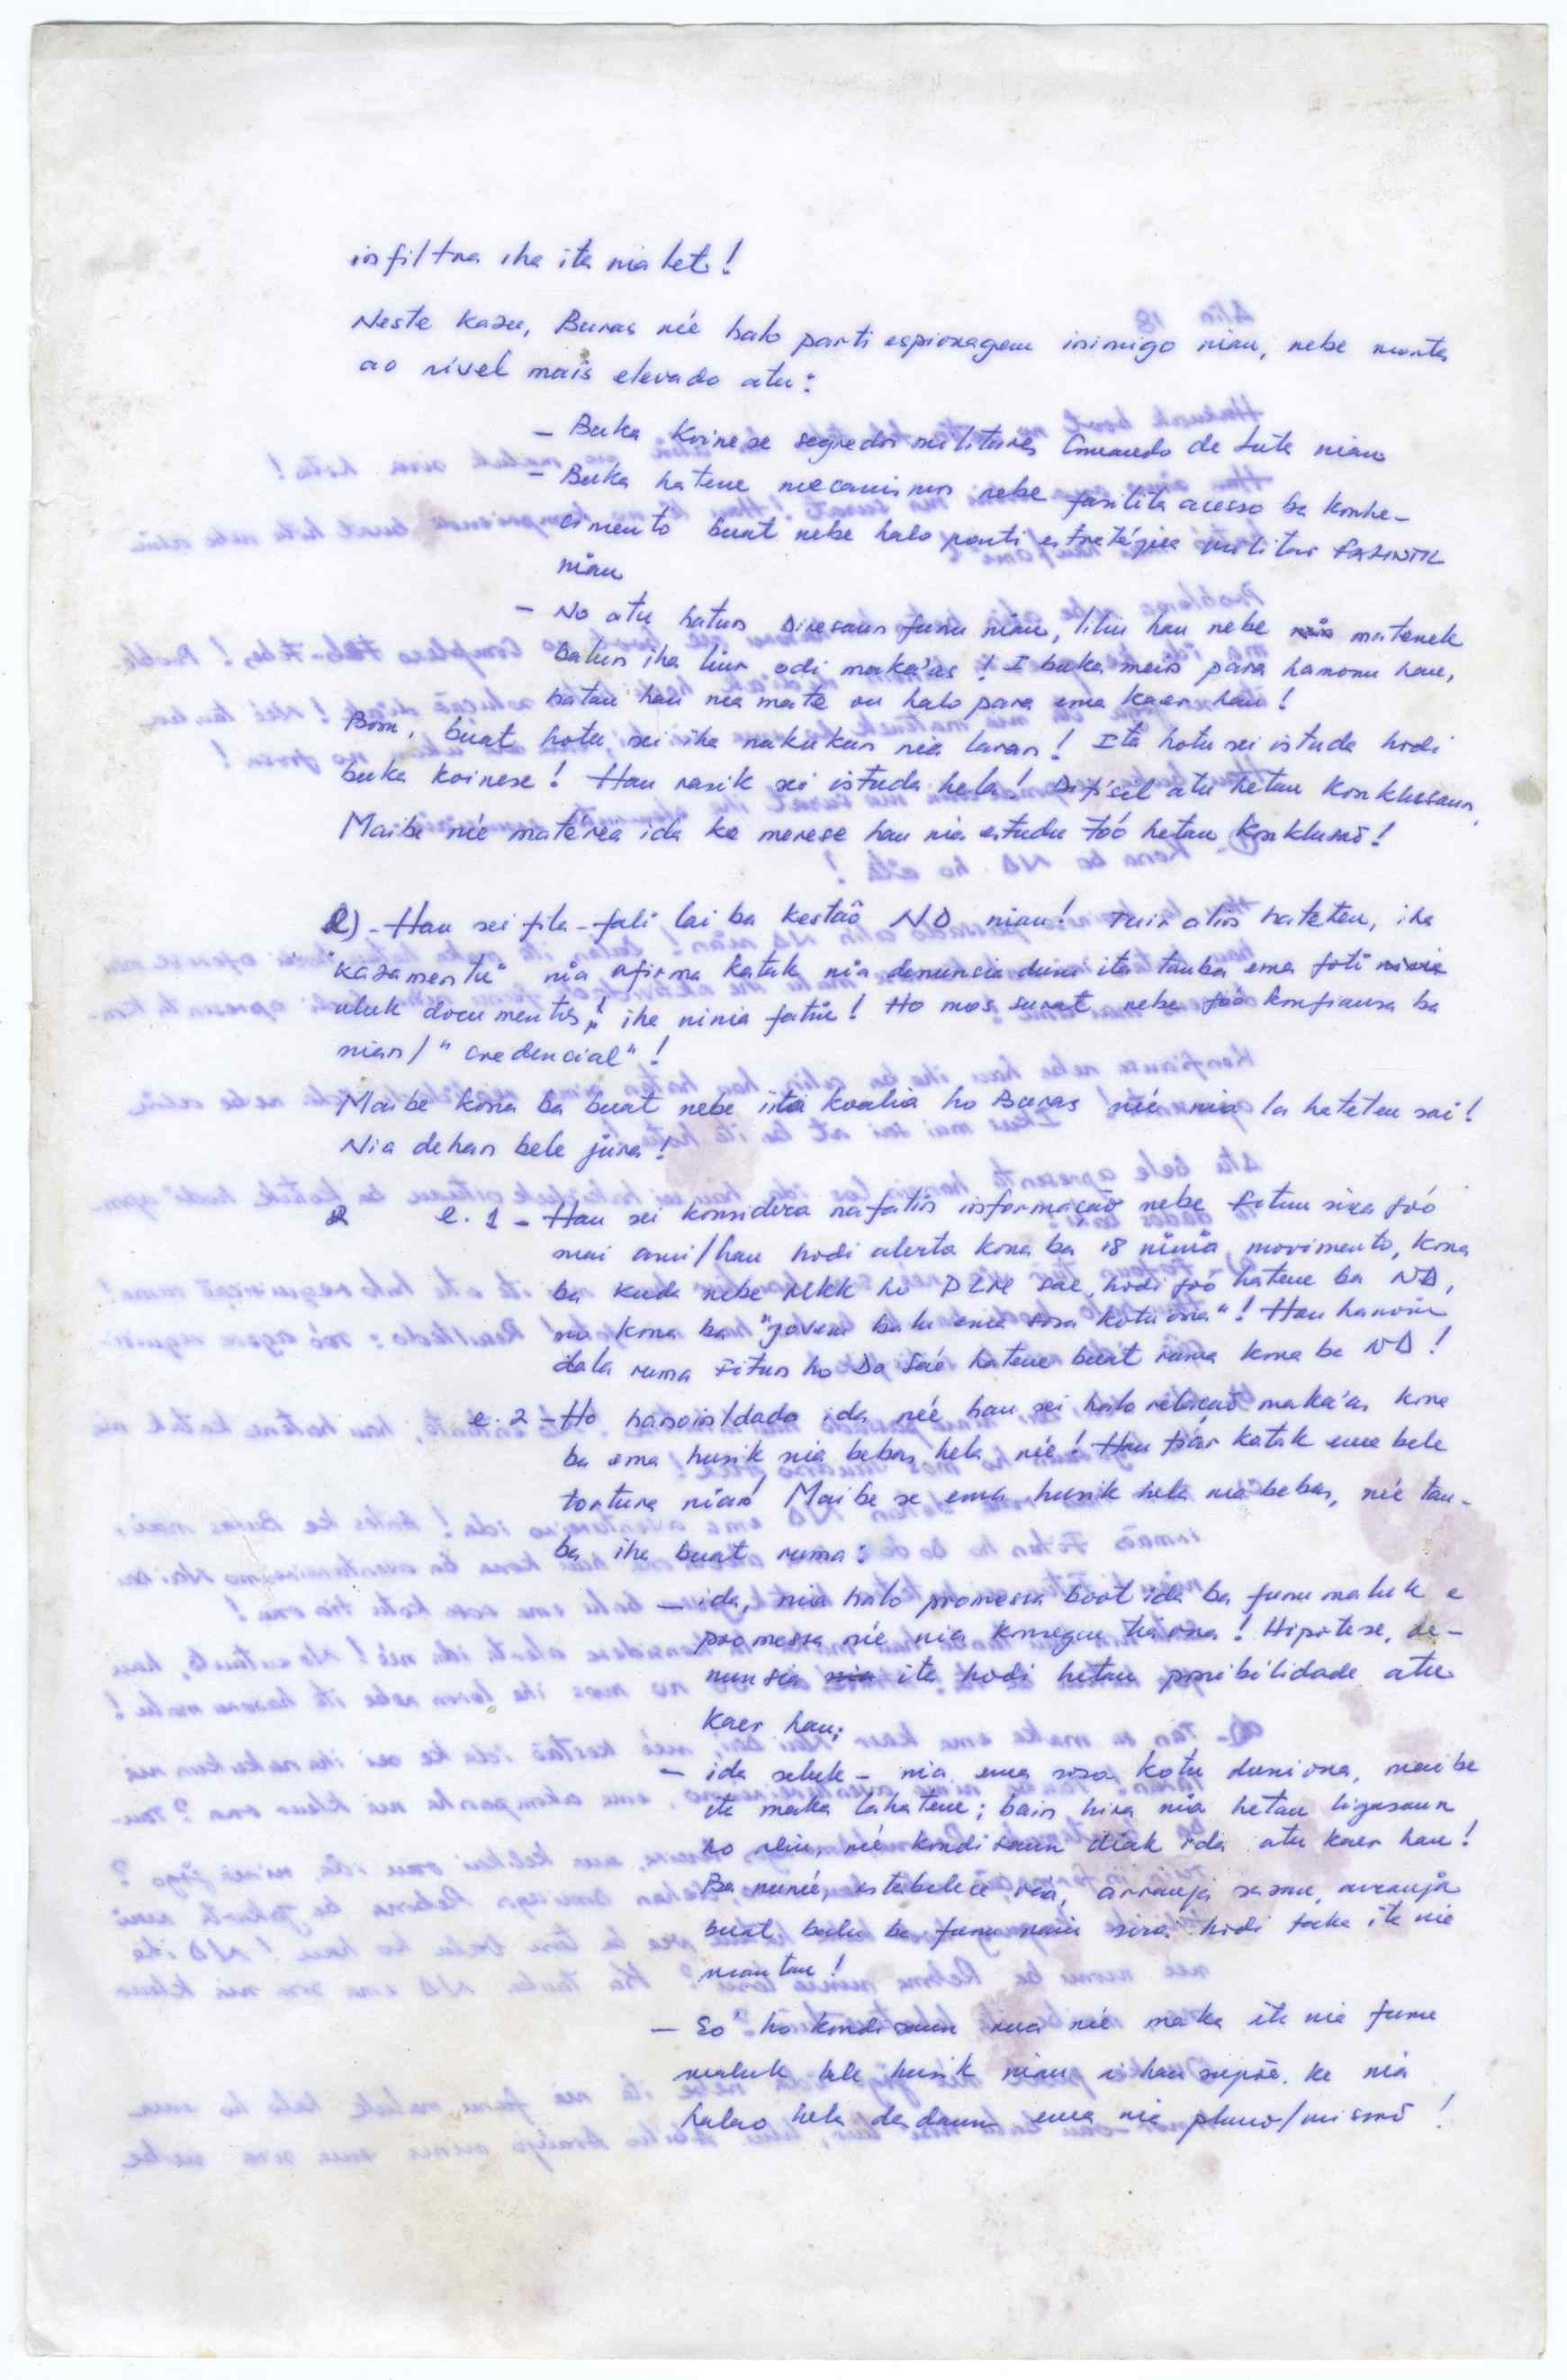 infiltra iha ita nia let!
Neste kazu, Buras né'e halo parti espionagem inimigo nian, nebe monta
ao nível mais elevado atu:
- Buka koinese segredos militares Comando de Luta nian
- Buka hatene mecanismos nebe fasilita acesso ba konhe-
cimento buat nebe halo parti estratégica militar FALINTIL
nian
- No atu hatun Diresaun funu nian, liliu hau nebe matenek
balun iha liur odi maka'as! I buka meio para hamonu hau,
hatau hau nia mate ou halo para ema kaer hau!
Bom, buat hotu sei iha nakukun nia laran! Ita hotu sei istuda hodi
buka koinese! Hau rasik sei istuda hela! Difísil atu hetan konklusaun,
Maibe né'e matéria ida ke merese hau nia estudu tó'o hetan konklusão!
e) - Hau sei fila-fali lai ba kestaõ ND nian! Tuir alin hateten, iha
"kazamentu" nia afirma katak nia denunsia duni ita tauba ema foti
uluk documentos, iha ninia fatin! Ho mos surat nebe fó'o konfiansa ba
nian/"credencial"!
Maibe kona ba buat nebe ita koalia ho Buras né'e nia la hateten sai!
Nia dehan bele jura!
e. 1 - Hau sei konsidera nafatin informação nebe Fitun sira fó'o
mai ami/hau hodi alerta kona ba 18 ninia movimento, kona
ba kuda nebe MKK ho PZM sae, hodi fó'o hatene ba ND,
no kona ba "jovem balu ema sosa kotu ona"! Hau hanoin
dala ruma Fitun ho Do Sa'e hatene buat ruma kona ba ND!
e. 2 - Ho hanoin/dado ida né'e hau sei halo relaçaõ maka'as kona
ba ema husik nia bebas hela né'e! Hau fiar katak ema bele
tortura nian! Maibe se ema husik hela nia bebas, né'e tau-
ba iha buat ruma:
- ida, nia halo promessa boot ida ba funu maluk e
promessa né'e nia konsegue tia ona! Hipótese, de-
nunsia ita hodi hetan posibilidade atu
kaer hau;
- ida seluk - nia ema sosa kotu duni ona, maibe
ita maka la hatene; bain hira nia hetan ligasaun
ho alin, né'e kondisaun diak ida atu kaer hau!
Ba nune'e, estabelece via, arranja sasan, arranja
buat balu ba funu nain sira hodi taka ita nia
matan!
- Só ho kondisaun rua né'e maka ita nia funu
maluk bele husik nian i hau supõe ke nia
halao hela dadaun ema nia plano/misão!